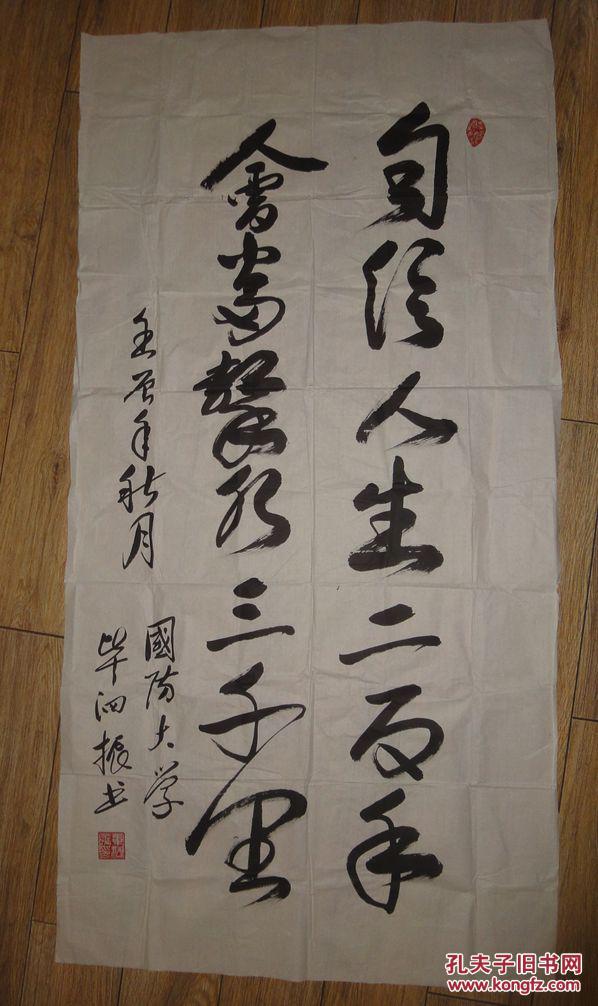 自信人生二百年
會當擊水三千里
壬辰年秋月
國防大学
毕泗振书
孔夫子旧书网
www.kongfz.com